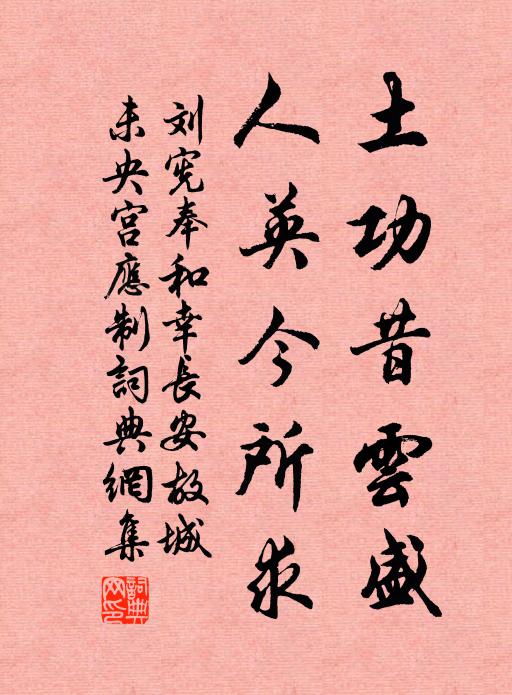 土功昔雲盛
人英今所求
刘宪奉和幸長安故城
未央宫應制詞典網集
詞典网印